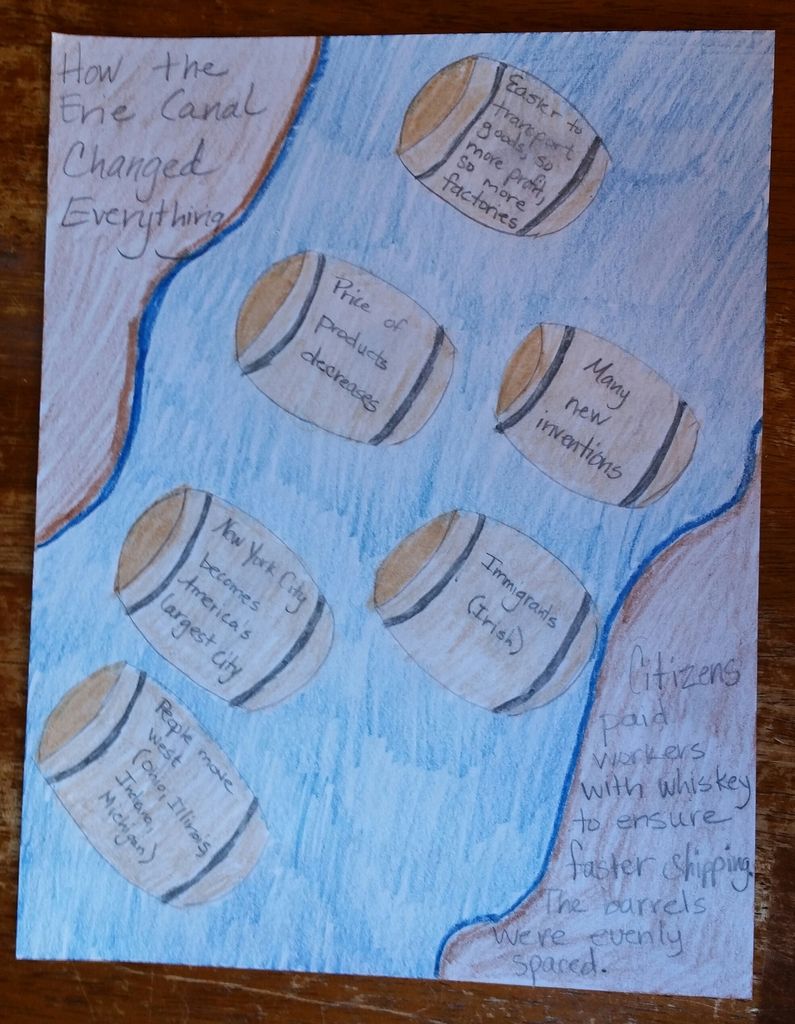 How the
Erie Canal
Changed
Everything
Easier to
transport
goods, so
more profit,
so more
factories
Price of
products
decreases
Many
new
inventions
New York City
becomes
America's
largest city
Immigrants
(Irish)
People move
west
(Ohio, Illinois,
Indiana,
Michigan)
Citizens
paid
workers
with whiskey
to ensure
faster shipping.
The barrels
were evenly
spaced.